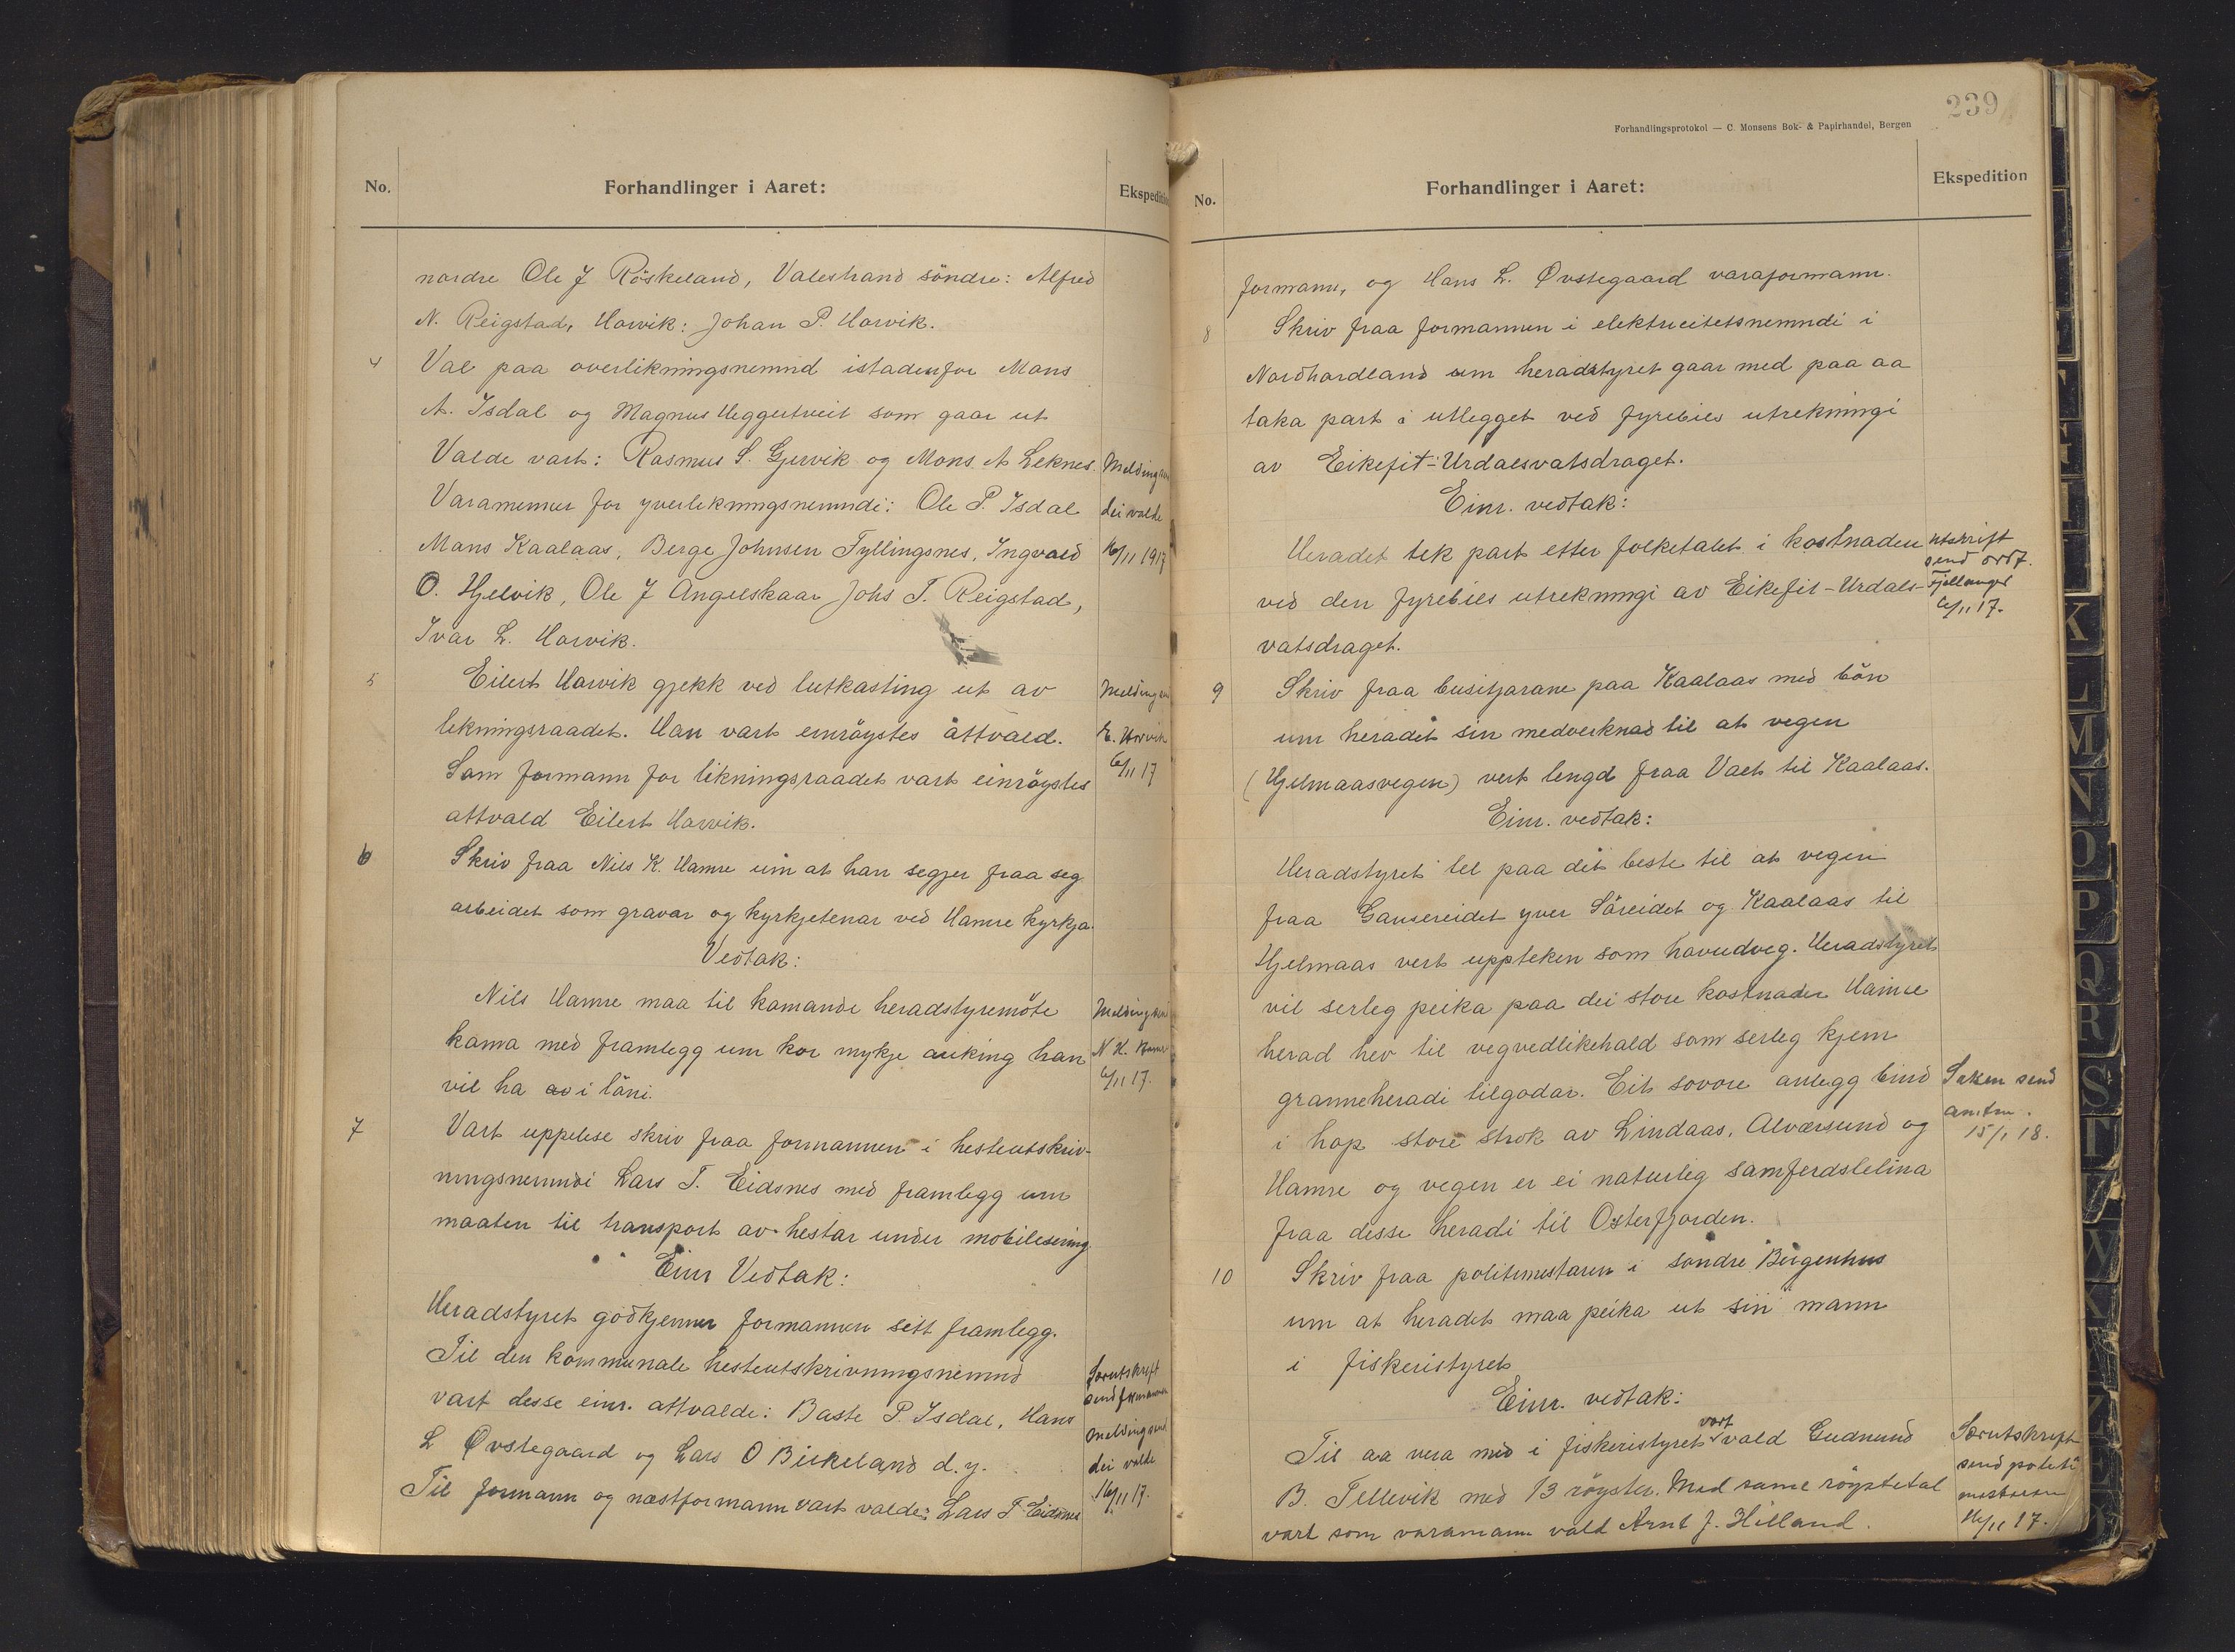 No.
Forhandlinger i Aaret:
Ekspedition
nordre Ole J Röskeland, Valestrand söndre: Alfred
N. Reigstad, Horvik: Johan P. Horvik.
4 Val paa overlikningsnemnd istadenfor Mons
A. Isdal og Magnus Heggertveit som gaar ut
Valde vart: Rasmus S. Gjervik og Mons A Leknes.
Varamenner for yverlikningsnemndi: Ole P. Isdal
Mons Kaalaas, Berge Johnsen Tyllingsnes, Ingvald
O. Hjelvik, Ole J Angelskaar Johs T. Reigstad,
Ivar L. Horvik.
Melding
dei valde
16/11 1917
5 Eilert Horvik gjekk ved lutkasting ut av
likningsraadet. Han vart einröystes åttvald.
Som formann for likningsraadet vart einröystes
attvald Eilert Horvik.
Melding
E. Horvik
6/11 17
6 Skriv fraa Nils K. Hamre um at han segjer fraa seg
arbeidet som gravar og kyrkjetenar ved Hamre kyrkja.
Vedtak:
Nils Hamre maa til komande heradstyremöte
koma med framlegg um kor mykje auking han
vil ha av i löni.
Melding send
N K. Hamre
6/11 17.
7 Vart upplese skriv fraa formannen i hesteutskriv-
ningsnemndi Lars T. Eidsnes med framlegg um
maaten til transport av hestar under mobilisering
Einr Vedtak:
Heradstyret godkjenner formannen sitt framlegg.
Til den kommunale hesteutskrivningsnemnd
vart desse einr. attvalde: Baste P. Isdal, Hans
L Øvstegaard og Lars O Birkeland d.y.
Til formann og næstformann vart valde: Lars T. Eidsnes
Særutskrift
send formannen
Melding send
dei valde
16/11 17.
239
Forhandlingsprotokol — C. Monsens Bok- & Papirhandel, Bergen
No.
Forhandlinger i Aaret:
Ekspedition
formann, og Hans L. Øvstegaard varaformann.
8 Skriv fraa formannen i elektricitetsnemndi i
Nordhordland um heradstyret gaar med paa aa
taka part i utlegget ved fyrebils utrekningi
av Eikefit-Urdalsvatsdraget.
Einr. vedtak:
Heradet tek part etter folketalet i kostnaden
ved den fyrebils utrekningi av Eikefit-Urdals-
vatsdraget.
utskrift
send ordf.
Fjellanger
6/11 17.
9 Skriv fraa busitjarane paa Kaalaas med bön
um heradet sin medverknad til at vegen
(Hjelmaasvegen) vert lengd fraa Vaet til Kaalaas.
Einr. vedtak:
Heradstyret tel paa det beste til at vegen
fraa Gausereidet yver Söreidet og Kaalaas til
Hjelmaas vert uppteken som hovudveg. Heradstyret
vil serleg peika paa dei store kostnader Hamre
herad hev til vegvedlikehald som serleg kjem
granneheradi tilgodar. Eit sovore anlegg bind
i hop store strok av Lindaas, Alværsund og
Hamre og vegen er ei naturleg samferdslelina
fraa desse heradi til Osterfjorden.
Saken send
amtm.
15/1 18.
10 Skriv fraa politimestaren i söndre Bergenhus
um at heradet maa peika ut sin mann
i fiskeristyret
Einr. vedtak:
Til aa vera med i fiskeristyret vart vald Gudmund
B. Tellevik med 13 röyster. Med same röystetal
vart som varamann vald Arnt J. Hilland.
Særutskrift
send politi
mesteren
16/11 17.
K
L
M
N
O
P
Q
R
S
T